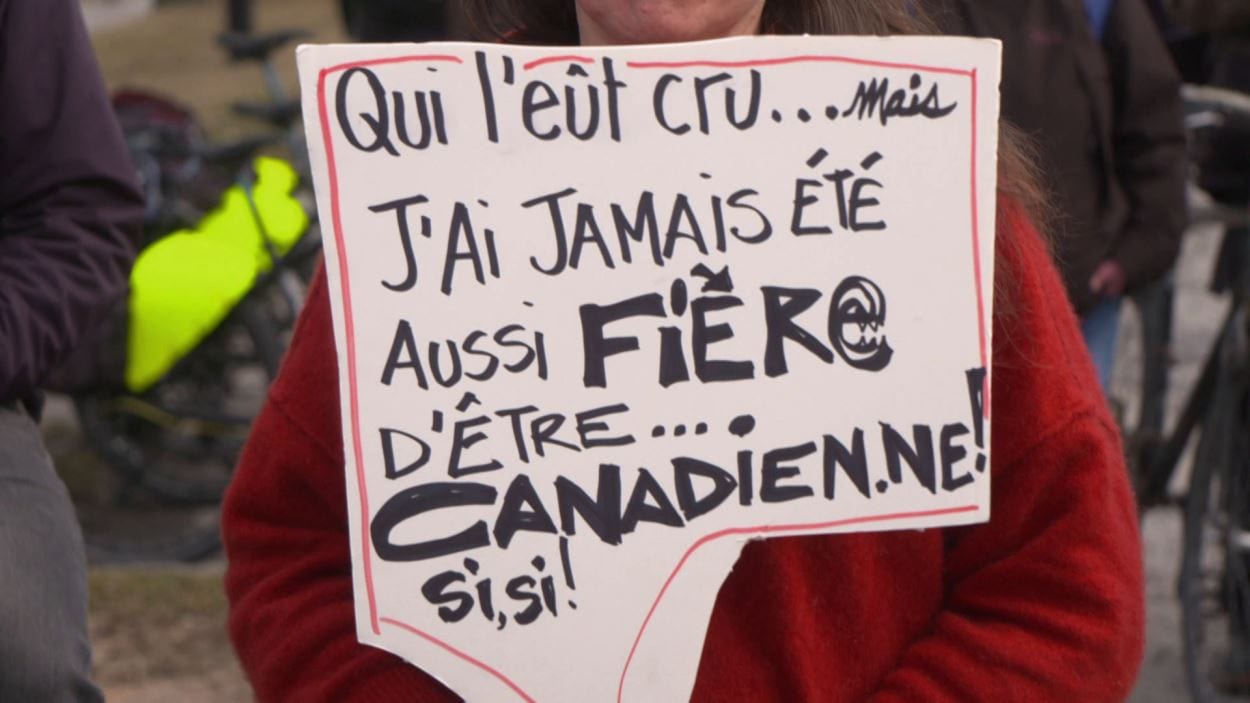 Qui l'eût cru...mais
J'Ai JAMAiS ÉTÉ
AUSSi FiÈR@
D'ÊTRE....
CANADiEN.NE!
si,si!